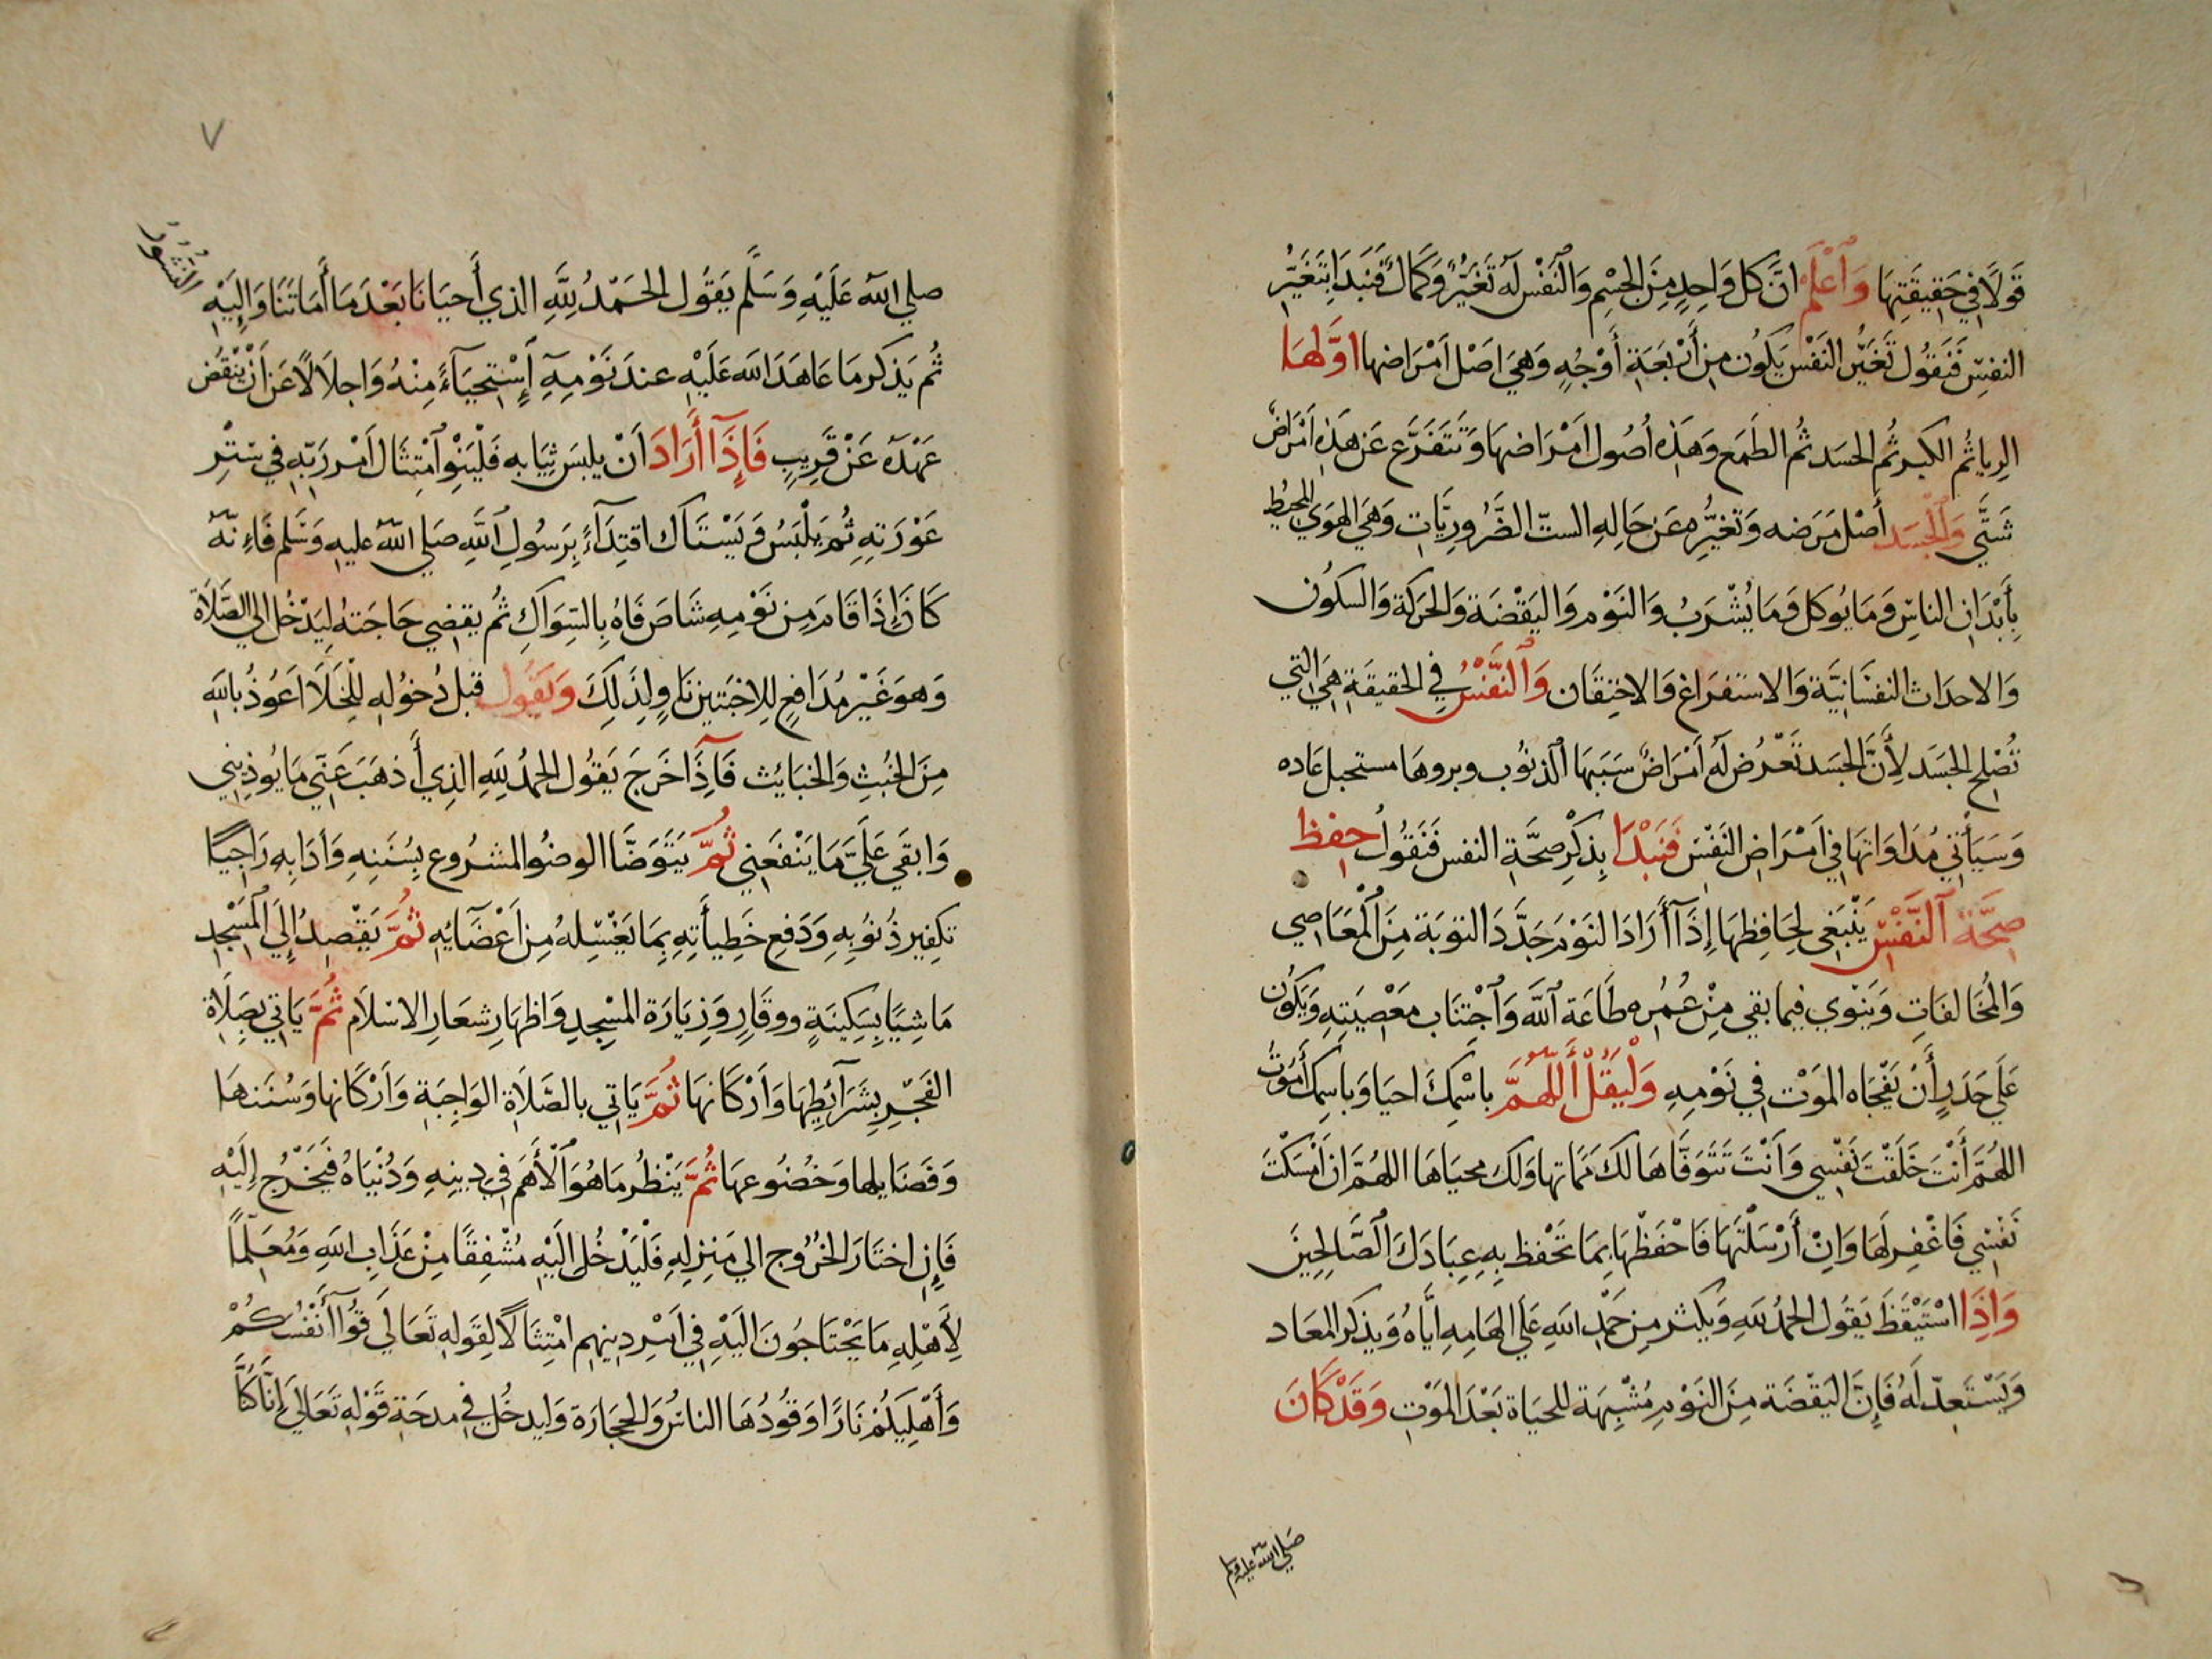 قَولًا فِي حَقِيقَتِهَا وَٱعْلَمْ انَّ كل وَاحِدٍ مِنَ الجِسْمِ وَالنَّفْس لَه تَغَيُّرٌ وَكَمَالٌ فَنَبْدَا بِتَغَيُّرِ
النفسِ فَنَقُول تَغَيُّر النَفْس يَكُون مِن أَرْبَعَةِ أَوْجُهٍ وَهِيَ اَصْل اَمْرَاضها اوَّلهَا
الرِيا ثُم الكبر ثُم الحَسَد ثُم الطَمَع وَهَذِه اُصُول اَمْرَاضهَا وَتَتَفَرَّع عَن هَذِه اَمْرَاضٌ
شَتَّي وَالْجَسَد أَصْل مَرَضه وَتَغيُّرِه عَن حَالِهِ الستّ الضَّرُورِيَّاتِ وَهيَ الهَوَي المحيطُ
بِأَبْدَانِ الناسِ وَمَا يُوكل وَمَا يُشْرَبُ وَالنَوْم وَاليَقْضَة وَالحَركَة وَالسكُون
وَالاحدَاث النفسَانِيَّة وَالاستفرَاغ وَالاحْتِقَان وَٱلنَّفْسُ فِي الحَقيقَةِ هِيَ التي
تُصْلِح الجَسَد لِأَنَّ الجَسَد تَعْرُض لَه اَمْرَاضٌ سَبَبهَا الذنوُب وبروها مستحيل عَاده
وَسَيَأتي مُدَاوَاتهَا فِي اَمْرَاضِ النَفْسِ فَنَبْدَا بِذِكْرِ صِحَّةِ النفس فَنَقُولُ حِفظ
صِحَّةَ ٱلنَّفْسِ يَنْبَغي لِحَافِظِهَا إِذَآ أَرَادَ النَوْمَ جَدَّدَ التوبَة مِنَ الْمَعَاصِي
وَالمُخَالفَاتِ وَيَنْوي فِيما بقي مِنْ عُمُرِه طَاعَة ٱللَّه وَٱجْتِنَاب مَعْصِيَتِهِ وَيَكُون
عَلَي حَدَرٍ أَنْ يَفْجَاه المَوْت فِي نَوْمِهِ وَلْيَقُلْ أَللَّهُمَّ باسْمِكَ احيَا وَباسِمك أَمُوتُ
اللهُمَّ أَنْتَ خَلَقْتَ نَفْسِي وَاَنْتَ تَتَوَفَّاهَا لَكَ مَمَاتها وَلك محيَاهَا اللهُمَّ ان اَمْسَكْتَ
نَفْسِي فَاغْفِر لَهَا وَاِنْ أَرْسَلْتَهَا فَاحْفَظْهَا بِمَا تَحْفظ بِهِ عِبَادَكَ ٱلصَّالِحِينَ
وَاِذَا اسْتَيْقَظَ يَقُول الحَمْدُ للّهِ وَيكثر مِن حَمْدِ اللهِ عَلَي الهَامِهِ ايَّاهُ وَيَذكر المعَاد
وَيَسْتَعِدّ لَهُ فَاِنَّ اليَقْضَة مِنَ النَوْمِ مُشْبِهَة للحَيَاة بَعْدَ المَوْتِ وَقَدْ كَانَ
صَلي الله عَليه وسلم
٧
صلي اللهُ عَلَيْهِ وَسَلَّم يَقُول الحَمْدُ لِلَّهِ الذي أَحيَانَا بَعْدَمَا أَمَاتَنَا وَاِلَيْهِ
النُشُورُ
ثُم يَذكر مَا عَاهَدَ الله عَلَيْهِ عند نَوْمِهِ إِسْتِحيَآءً مِنْهُ وَاجلَالًا عَن اَنْ يَنْقُض
عَهْدَه عَنْ قَرِيبٍ فَإِذَآ أَرَادَ اَنْ يلبسَ ثِيَابه فَلْيَنْوِ ٱمْتِثَال اَمْر رَبّهِ فِي سَتْرِ
عَوْرَتِهِ ثُمَّ يَلْبَسُ وَيَسْتَاك اقتِدَآءً بِرَسُولِ ٱللَّهِ صَلي اللهُ عليهِ وَسَلم فَاِنّهُ
كَانَ إِذَا قَامَ مِن نَوْمِهِ شَاصَ فَاهُ بِالسِوَاكِ ثُم يقضِي حَاجَتهُ لِيَدْخُل الي الصَّلَاة
وَهوَ غَيْر مُدَافِعٍ لِلاخبَثين نَاوٍ لِذَلِكَ وَيَقُول قبل دُخوُلِهِ للخَلَا اَعُوذُ بِاللّهِ
مِنَ الخُبُثِ وَالخبَايُث فَإِذَا خَرَجَ يَقوُل الحمدُ لِلّهِ الذِي أَذهَبَ عَنِّي مَا يُوذِيني
وَابقَي عَلَيَّ مَا يَنْفَعَنِي ثُمَّ يَتَوَضَّا الوضُو المشرُوع بِسُنَنِهِ وَادَابِهِ رَاجيًا
تكفِير ذُنُوبِهِ وَدَفع خَطِيأَتِهِ بِمَا يَغْسِلهُ مِن اَعْضَآيِهِ ثُمَّ يَقْصِدُ إِلَي الْمَسْجِد
مَاشِيَا بِسَكِينَةٍ ووقَارٍ وَزِيَارَة المَسْجِدِ وَاظهَارِ شعَار الاسْلَام ثُمَّ يَاتي بِصَلَاة
الفَجْرِ بِشَرَآئِطِهَا وَأَرْكَانهَا ثُمَّ يَاتي بالصَّلَاةِ الوَاجِبَةِ وَاَرْكَانها وَسُنَنهَا
وَفَضَايلها وَخُضُوعهَا ثُمَّ يَنْظُر مَا هُوَ ٱلْأَهَم فِي دِينِهِ وَدُنْيَاهُ فَيَخْرُج إِلَيْهِ
فَإِن اختَارَ الخُرُوج الي مَنزِلِهِ فَلْيَدْخُل اِلَيْهِ مُشْفِقًا مِنْ عَذَابِ اللّهِ وَمُعَلِّماً
لِأَهْلِهِ مَا يَحْتَاجُونَ اليْهِ فِي اَمْر دِينِهِم امْتِثَالًا لِقَولِهِ تَعَالَي قُوآ أَنْفُسَكُمْ
وَأَهْلِيكُمْ نَارًا وَقُودُهَا الناسُ وَالحجَارَة وَليدخُل فِي مدحَةِ قَوْلِهِ تَعَالَي إِنَّا كُنَّا